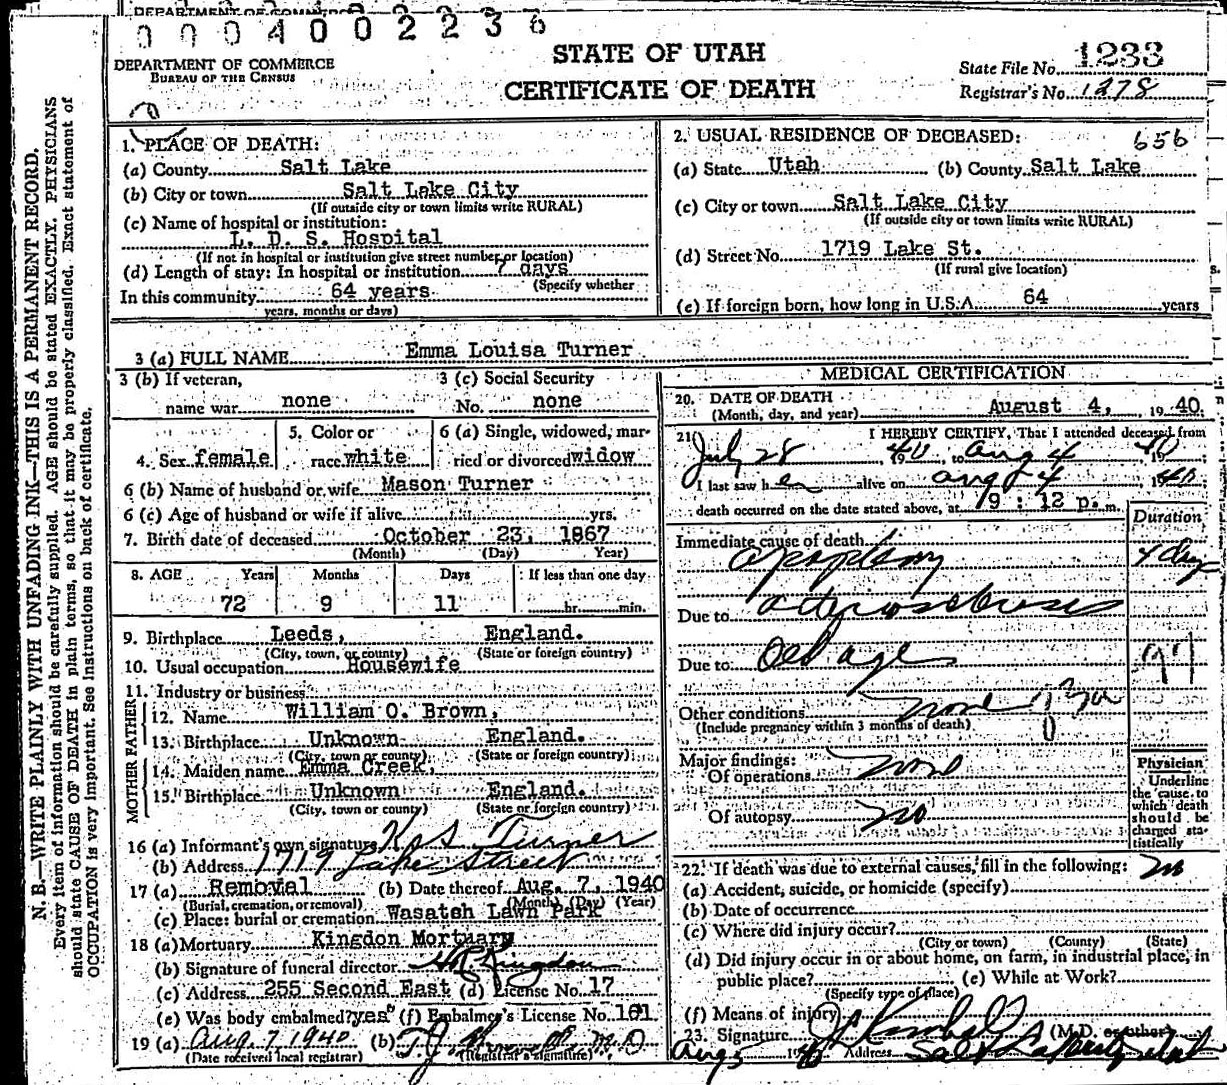 0004002236
DEPARTMENT OF COMMERCE
BUREAU OF THE CENSUS
STATE OF UTAH
CERTIFICATE OF DEATH
State File No. 1233
Registrar's No. 1278
656
N. B.—WRITE PLAINLY WITH UNFADING INK—THIS IS A PERMANENT RECORD.
Every item of information should be carefully supplied. AGE should be stated EXACTLY. PHYSICIANS
should state CAUSE OF DEATH in plain terms, so that it may be properly classified. Exact statement of
OCCUPATION is very important. See instructions on back of certificate.
1. PLACE OF DEATH:
(a) County Salt Lake
(b) City or town Salt Lake City
(If outside city or town limits write RURAL)
(c) Name of hospital or institution:
L. D. S. Hospital
(If not in hospital or institution give street number or location)
(d) Length of stay: In hospital or institution 7 days
(Specify whether
In this community 64 years
years, months or days)
2. USUAL RESIDENCE OF DECEASED:
(a) State Utah (b) County Salt Lake
(c) City or town Salt Lake City
(If outside city or town limits write RURAL)
(d) Street No. 1719 Lake St.
(If rural give location)
(e) If foreign born, how long in U.S.A. 64 years
3 (a) FULL NAME Emma Louisa Turner
3 (b) If veteran, 3 (c) Social Security
name war none No. none
4. Sex female 5. Color or race white 6 (a) Single, widowed, married or divorced widow
6 (b) Name of husband or wife Mason Turner
6 (c) Age of husband or wife if alive yrs.
7. Birth date of deceased October 23, 1867
(Month) (Day) Year)
8. AGE Years Months Days If less than one day
72 9 11 hr. min.
9. Birthplace Leeds, England.
(City, town, or county) (State or foreign country)
10. Usual occupation Housewife
11. Industry or business
FATHER
12. Name William O. Brown,
13. Birthplace Unknown England.
(City, town or county) (State or foreign country)
MOTHER
14. Maiden name Emma Creek,
15. Birthplace Unknown England.
(City, town or county) (State or foreign country)
16 (a) Informant's own signature Turner
(b) Address 1719 Lake Street
17 (a) Removal (b) Date thereof Aug. 7, 1940
(Burial, cremation, or removal) (Month) (Day) (Year)
(c) Place: burial or cremation Wasatch Lawn Park
18 (a) Mortuary Kingdon Mortuary
(b) Signature of funeral director Kingdon
(c) Address 255 Second East (d) License No. 17
(e) Was body embalmed? yes (f) Embalmer's License No. 101
19 (a) Aug 7 1940 (b) T. J. M D
(Date received local registrar) (Registrar's signature)
MEDICAL CERTIFICATION
20. DATE OF DEATH
(Month, day, and year) August 4, 1940.
21. I HEREBY CERTIFY, That I attended deceased from
July 28 1940 to Aug 4 1940
I last saw her alive on Aug 4 1940
death occurred on the date stated above, at 9:12 p. m.
Duration
Immediate cause of death
apoplexy 4 days
Due to arteriosclerosis
Due to Old age
Other conditions none
(Include pregnancy within 3 months of death)
Major findings:
Of operations none
Of autopsy no
Physician
Underline
the cause to
which death
should be
charged sta-
tistically
22. If death was due to external causes, fill in the following: no
(a) Accident, suicide, or homicide (specify)
(b) Date of occurrence
(c) Where did injury occur?
(City or town) (County) (State)
(d) Did injury occur in or about home, on farm, in industrial place, in
public place? (e) While at Work?
(Specify type of place)
(f) Means of injury
23. Signature Kimball (M.D. or other)
Aug 5 1940 Address Salt Lake City Utah